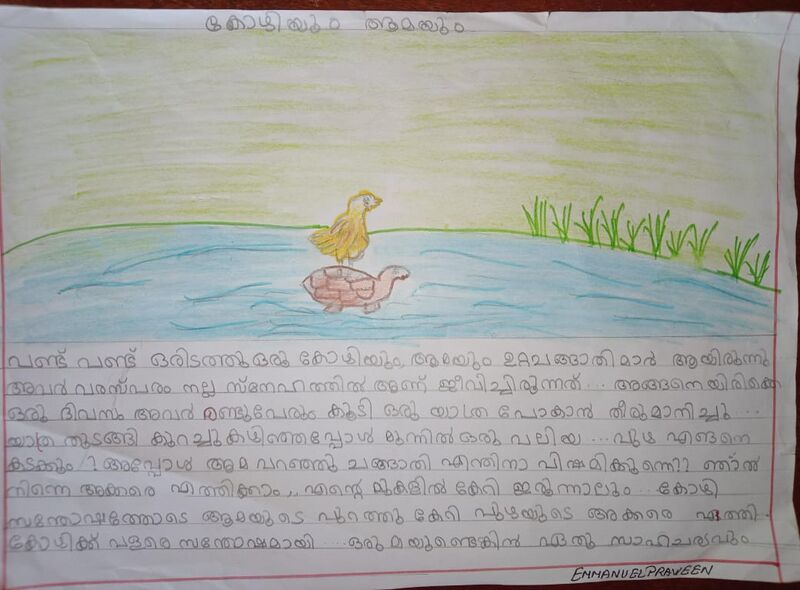 കോഴിയും ആമയും
പണ്ട് പണ്ട് ഒരിടത്തു ഒരു കോഴിയും, ആമയും ഉറ്റചങ്ങാതിമാർ ആയിരുന്നു
അവർ പരസ്പരം നല്ല സ്നേഹത്തിൽ ആണ് ജീവിച്ചിരുന്നത്... അങ്ങനെയിരിക്കെ
ഒരു ദിവസം അവർ രണ്ടുപേരും കൂടി ഒരു യാത്ര പോകാൻ തീരുമാനിച്ചു...
യാത്ര തുടങ്ങി കുറച്ചുകഴിഞ്ഞപ്പോൾ മുന്നിൽ ഒരു വലിയ ... പുഴ എങ്ങനെ
കടക്കും!? അപ്പോൾ ആമ പറഞ്ഞു ചങ്ങാതി എന്തിനാ വിഷമിക്കുന്നെ?? ഞാൻ
നിന്നെ അക്കരെ എത്തിക്കാം,, എന്റെ മുകളിൽ കേറി ഇരുന്നാലും... കോഴി
സന്തോഷത്തോടെ ആമയുടെ പുറത്തു കേറി പുഴയുടെ അക്കരെ എത്തി.
കോഴിക്ക് വളരെ സന്തോഷമായി ....ഒരുമയുണ്ടെങ്കിൽ ഏതു സാഹചര്യവും
EMMANUEL PRAVEEN